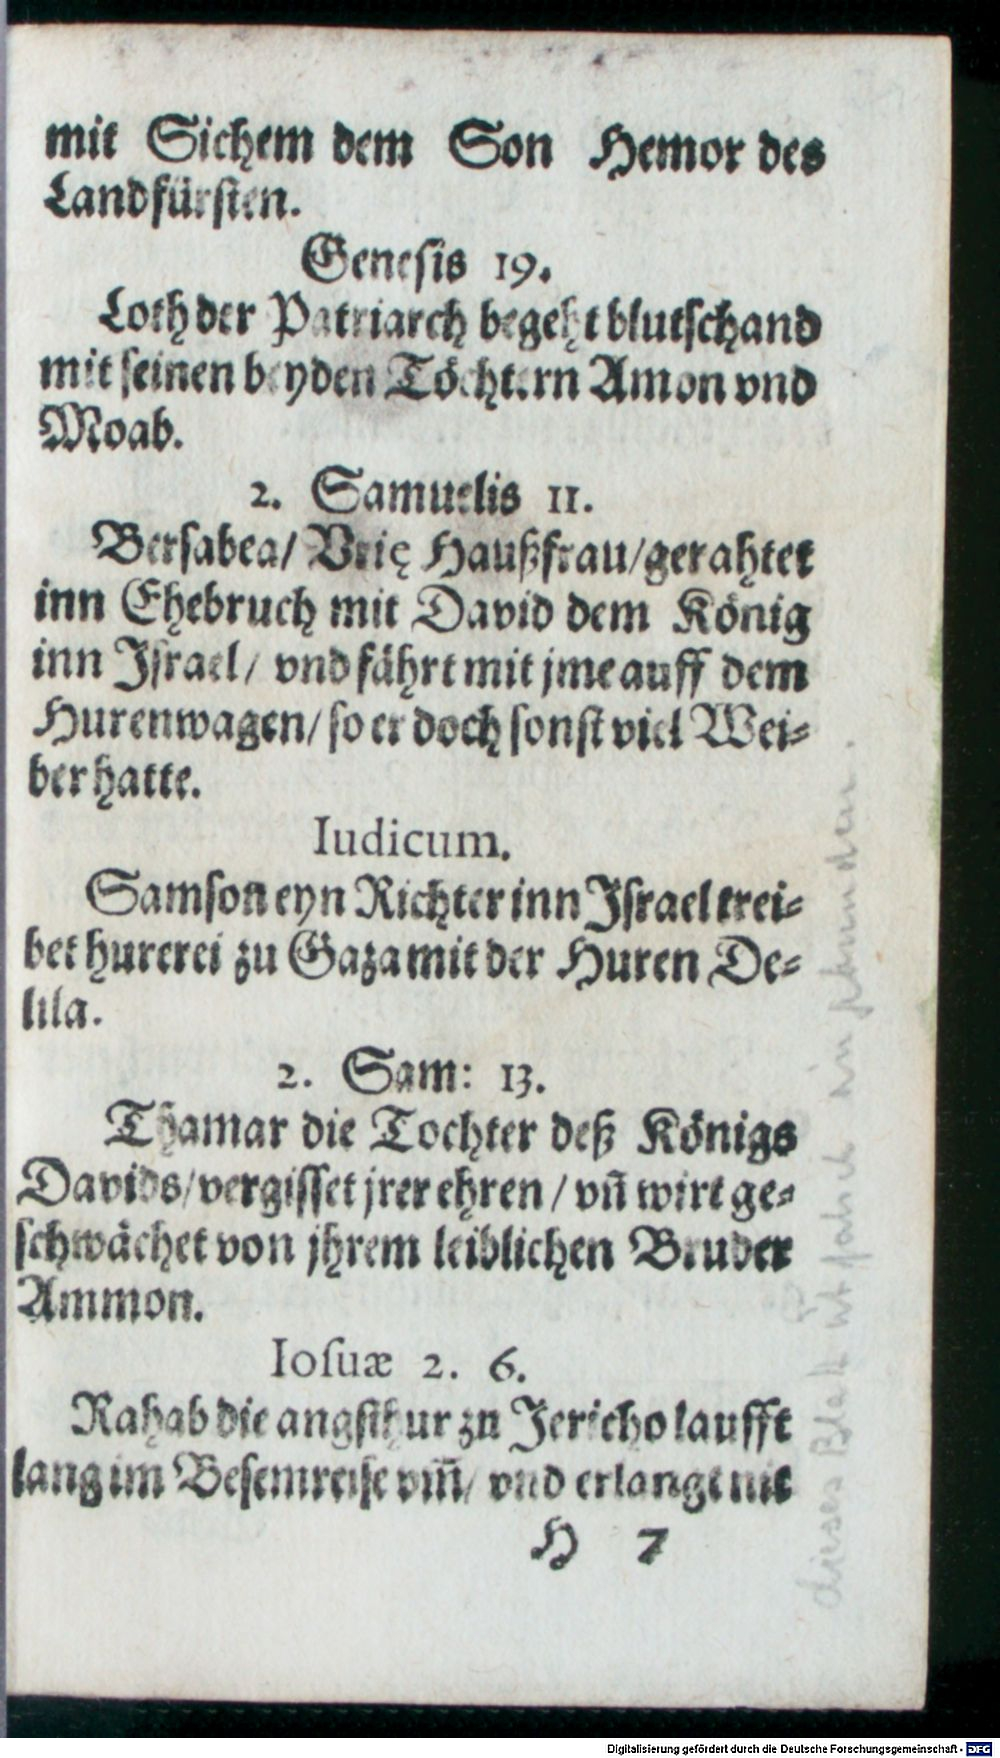 mit Sichem dem Son Hemor des
Landfürsten.
Genesis 19.
Loth der Patriarch begeht blutschand
mit seinen beyden Töchtern Amon vnd
Moab.
2. Samuelis 11.
Bersabea/ Vrię Haußfrau/gerahtet
inn Ehebruch mit David dem König
inn Jsrael/ vnd fährt mit jme auff dem
Hurenwagen/ so er doch sonst viel Wei-
ber hatte.
Iudicum.
Samson eyn Richter inn Jsrael trei-
bet hurerei zu Gaza mit der Huren De-
lila.
2. Sam: 13.
Thamar die Tochter deß Königs
Davids/vergisset jrer ehren/ vñ wirt ge-
schwächet von jhrem leiblichen Bruder
Ammon.
Iosuæ 2. 6.
Rahab die angsthur zu Jericho laufft
lang im Besemreise vm̃/ vnd erlangt mit
H 7
dieses Blatt ist falsch
Digitalisierung gefördert durch die Deutsche Forschungsgemeinschaft - DFG